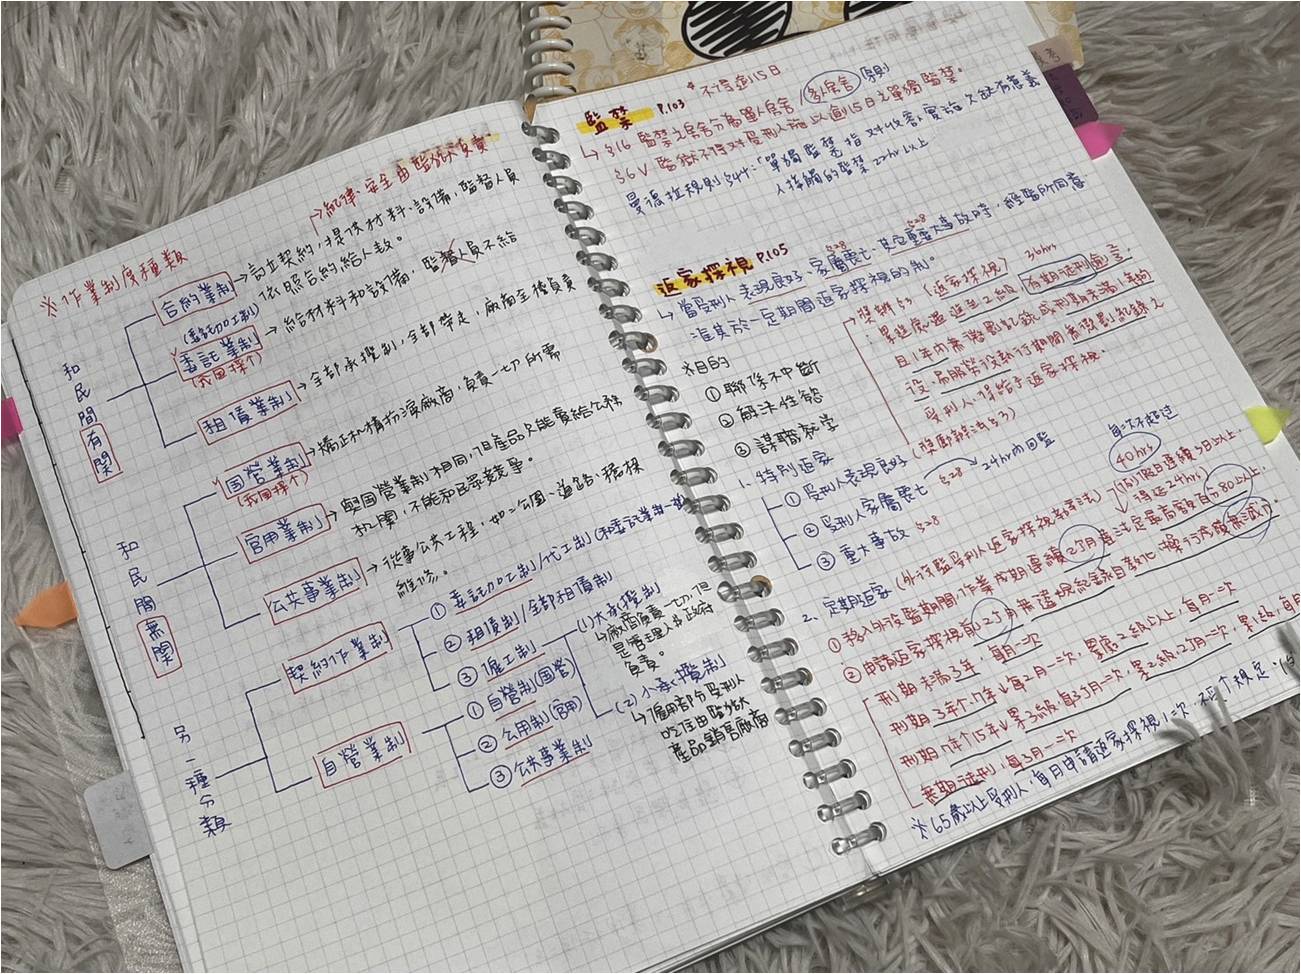 ※作業制度種類
紀律、安全由監獄負責
和民間有關
合約業制
(委託加工制)
→訂立契約,提供材料、設備,監督人員
依照合約給人數。
委託業制
(我國採行)
→給材料和設備,監督人員不給
租債業制
→全部承攬制,全部帶走,廠商全權負責
和民間無關
國營業制
(我國採行)
→矯正机構扮演廠商,負責一切所需
官用業制
→與國營業制相同,但產品只能賣給公務
机關,不能和民眾競爭。
公共事業制
→從事公共工程,如:公園、道路、橋樑
維修。
另一種分類
契約作業制
①委託加工制/代工制(和委託業制一樣)
②租債制/全部租債制
③僱工制
(1)大承攬制
↳廠商負責一切,但
是管理人是政府
負責。
(2)小承攬制
↳僱用部分受刑人
吃住由監獄
產品銷售廠商
自營業制
①自營制(國營)
②公用制(官用)
③公共事業制
監禁 P.103
*不得逾15日
↳§16 監禁之房舍分為單人房舍,多人房舍(原則)
36V 監獄不得對受刑人施以逾15日之單獨監禁。
曼德拉規則§44:「單獨監禁」指對收容人實施欠缺有意義
人接觸的監禁22hr以上
返家探視 P.105
↳當受刑人表現良好、家屬喪亡§28、其它重要大事故時§28,經監所同意
准其於一定期間返家探視的制。
※目的
①聯係不中斷
②解決性慾
③謀職就学
→獎辦§3(返家探視)36hrs
累進處遇進至2級,有期徒刑逾1/3,
且1年內無懲罰記錄或刑期未滿1年的
設、易服勞役執行期間無懲罰記錄之
受刑人,得給予返家探視。
(獎勵辦法§3)
1. 特別返家
①受刑人表現良好
②受刑人家屬喪亡§28→24hr內回監
③重大事故§28
2. 定期返家(外役監受刑人返家探視辦法)
每次不超過
40hrs
(例)假日連續3日以上,
得延24hrs)
①移入外役監期間,作業成期連續2個月達法定最高額百分80以上。
②申請返家探視前2個月無違規紀錄且教化、操行成績無減分
刑期未滿3年,每月一次
刑期3年↑7年↓每2月一次,累處2級以上,每月一次
刑期7年↑15年↓累3級每3月一次,累2級,2個月一次,累1級,每月
無期徒刑,每3月一次
※65歲以上受刑人,每月申請返家探視1次,不受↑規定。